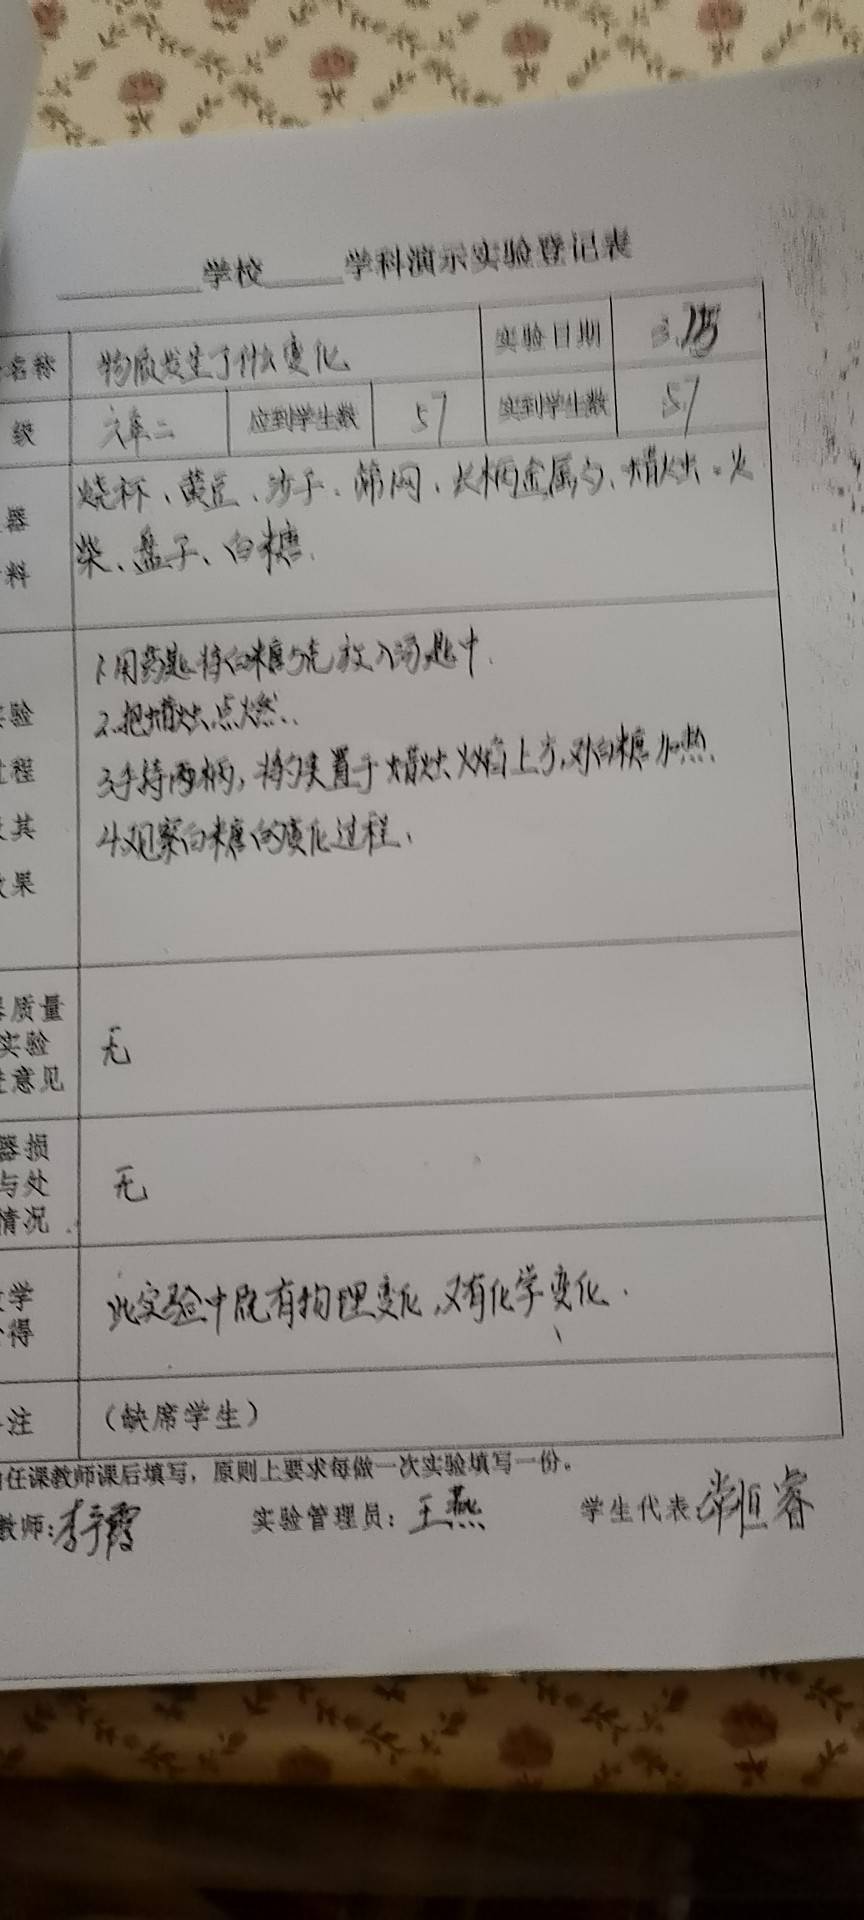 学校 学科演示实验登记表
名称 物质发生了什么变化 实验日期 3.
级 六年二 应到学生数 57 实到学生数 57
器 烧杯、黄豆、沙子、筛网、长柄金属勺、蜡烛、火
料 柴、盘子、白糖.
1.用药匙将白糖5克放入汤匙中.
验 2.把蜡烛点燃.
程 3手持两柄,将勺夹置于蜡烛火焰上方,对白糖加热.
其 4.观察白糖的变化过程.
果
质量
实验 无
意见
器损
与处 无
情况
学 此实验中既有物理变化,又有化学变化.
得
注 (缺席学生)
任课教师课后填写,原则上要求每做一次实验填写一份。
教师: 实验管理员:王燕 学生代表